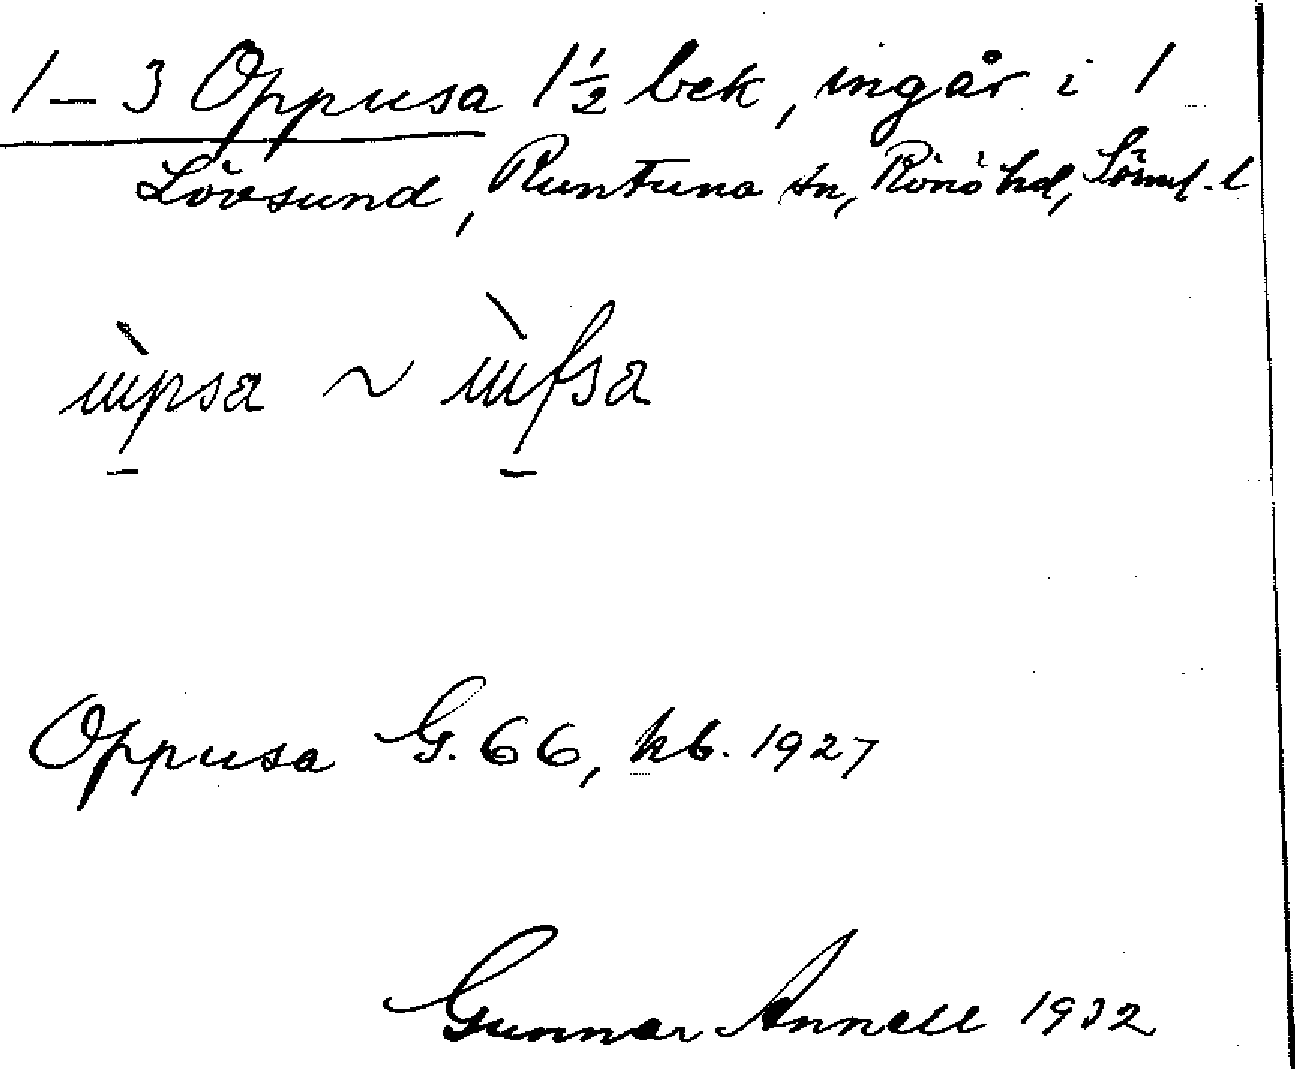 1–3 Oppusa 1 1/2 bek, ingår i 1
Lövsund, Runtuna sn, Rönö hd, Söml. l
Oppusa G. 66, kb. 1927
Gunnar Annell 1932